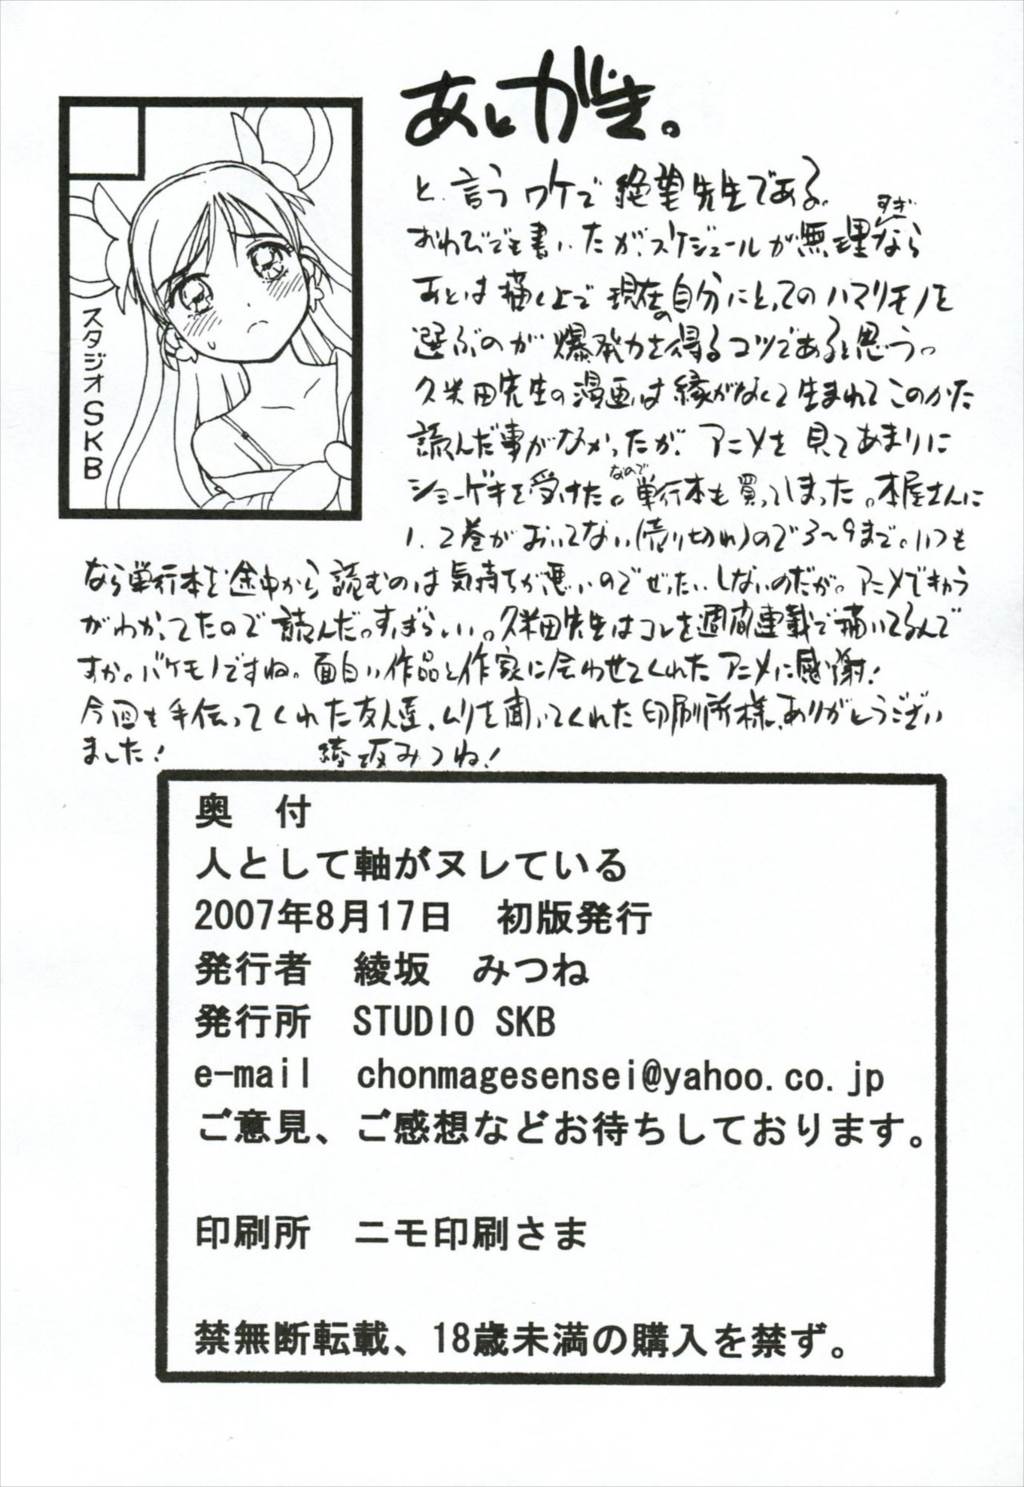 あとがき。
と、言うワケで絶望先生である。
おわびでも書いたが、スケジュールが無理すぎなら
あとは描く上で現在の自分にとってのハマリモノを
選ぶのが爆発力を得るコツであると思う。
久米田先生の漫画は縁がなくて生まれてこのかた
読んだ事がなかったが、アニメを見てあまりに
ショーゲキを受けた。なので単行本も買ってしまった。本屋さんに
1、2巻がおいてない(売り切れ)ので3〜9まで。いつも
なら単行本を途中から読むのは気持ちが悪いのでぜったいしないのだが。アニメできょうみ
がわかってたので読んだっすばらしい。久米田先生はコレを週間連載で描いてるんで
すか。バケモノですね。面白い作品と作家に会わせてくれたアニメに感謝!
今回も手伝ってくれた友人達、ムリを聞いてくれた印刷所様、ありがとうござい
ました! 綾坂みつね!
スタジオSKB
奥 付
人として軸がヌレている
2007年8月17日 初版発行
発行者 綾坂 みつね
発行所 STUDIO SKB
e-mail chonmagesensei@yahoo.co.jp
ご意見、ご感想などお待ちしております。
印刷所 ニモ印刷さま
禁無断転載、18歳未満の購入を禁ず。